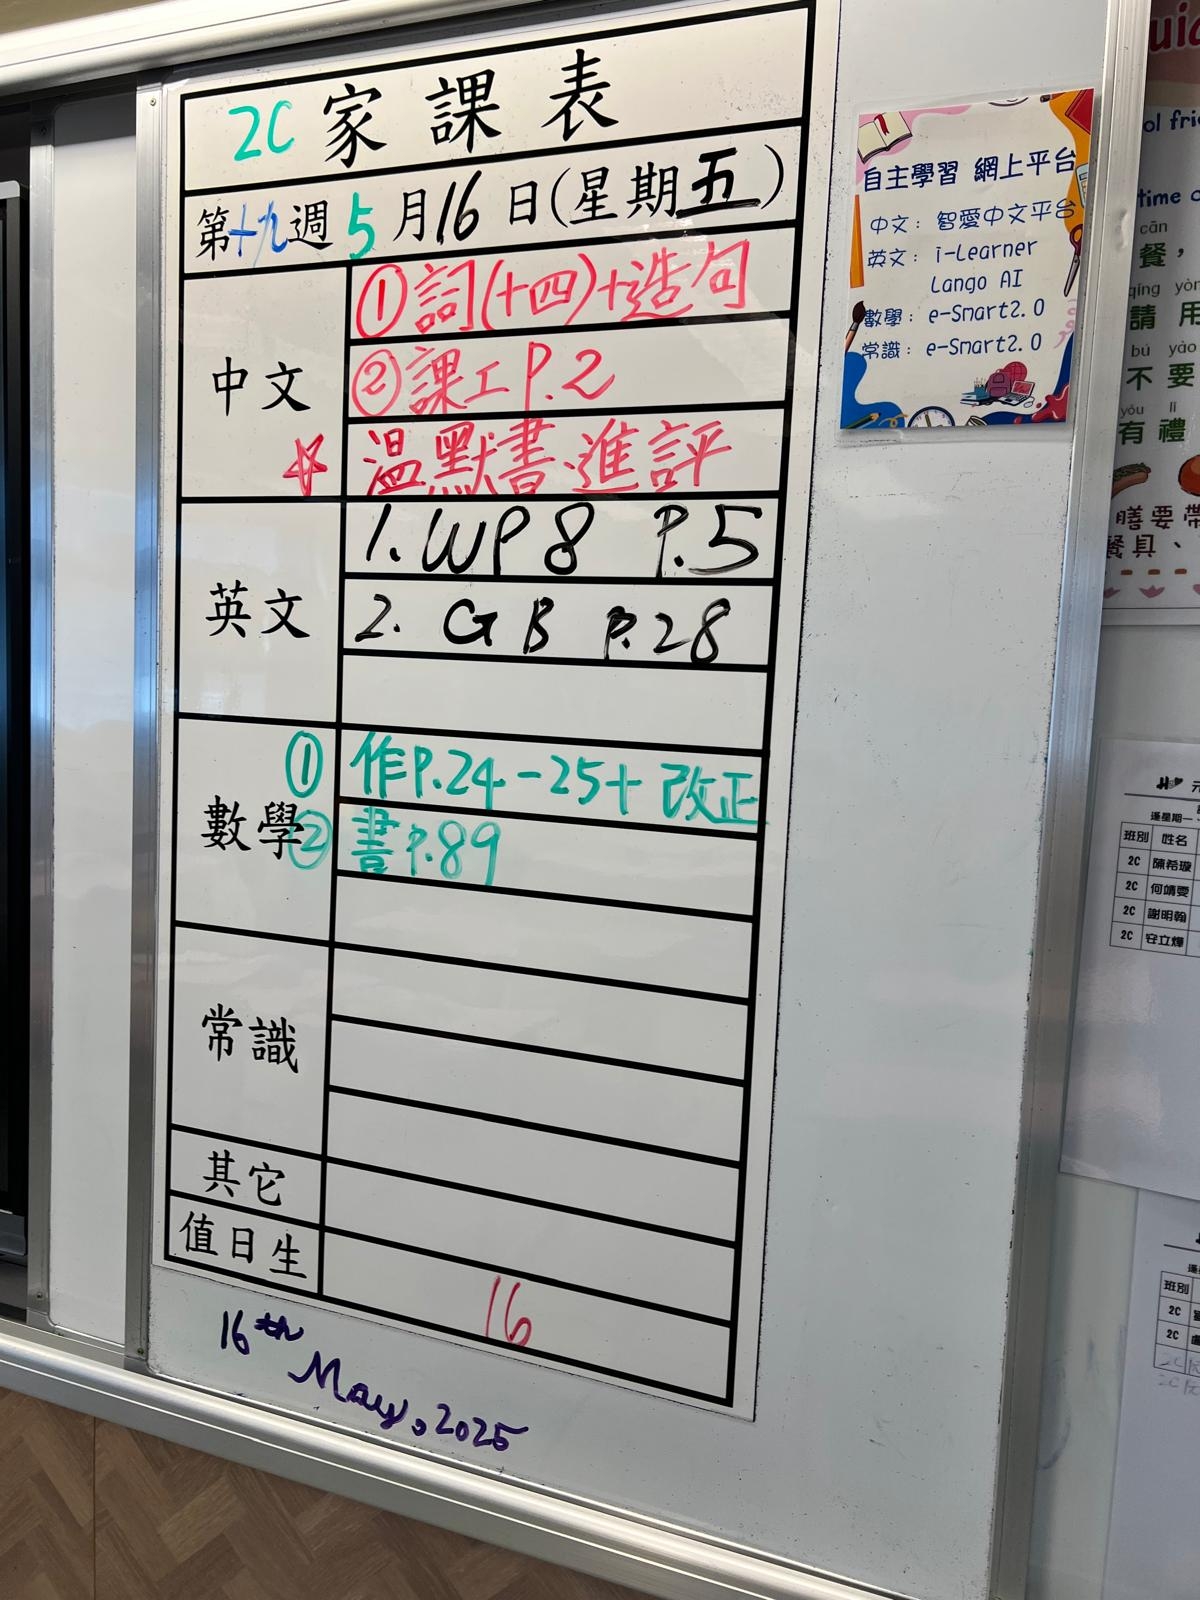 2C 家課表
第十九週 5月16日(星期五)
中文
①詞(十四)+造句
②課工P.2
☆ 溫默書、進評
英文
1. WP8 P.5
2. GB P.28
數學
① 作P.24-25+改正
② 書P.89
常識
其它
值日生
16
16th May, 2025
自主學習 網上平台
中文：智愛中文平台
英文：i-Learner
Lango AI
數學：e-Smart2.0
常識：e-Smart2.0
time
cān
餐，
qíng yòn
請用
bú yào
不要
yǒu lǐ
有禮
膳要帶
餐具、
逢星期一
班別 姓名
2C 陳希璇
2C 何靖雯
2C 謝明翰
2C 安立燁
班別
2C
2C